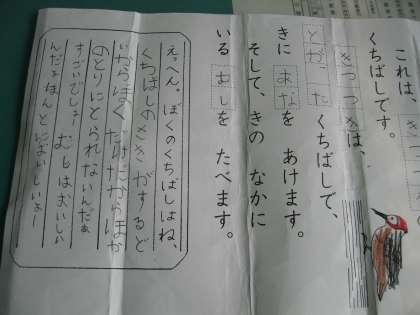 これは、きつつきの
くちばしです。
きつつきは、
とがった
くちばしで、
きに あなを あけます。
そして、きの なかに
いる むしを たべます。
えっへん。ぼくのくちばしはね、
くちばしのさきがするど
いからぼくたちはなかなかほか
のとりにとられないんだあ
すごいでしょ！むしはおいしい
んだよほんとにおいしいよー